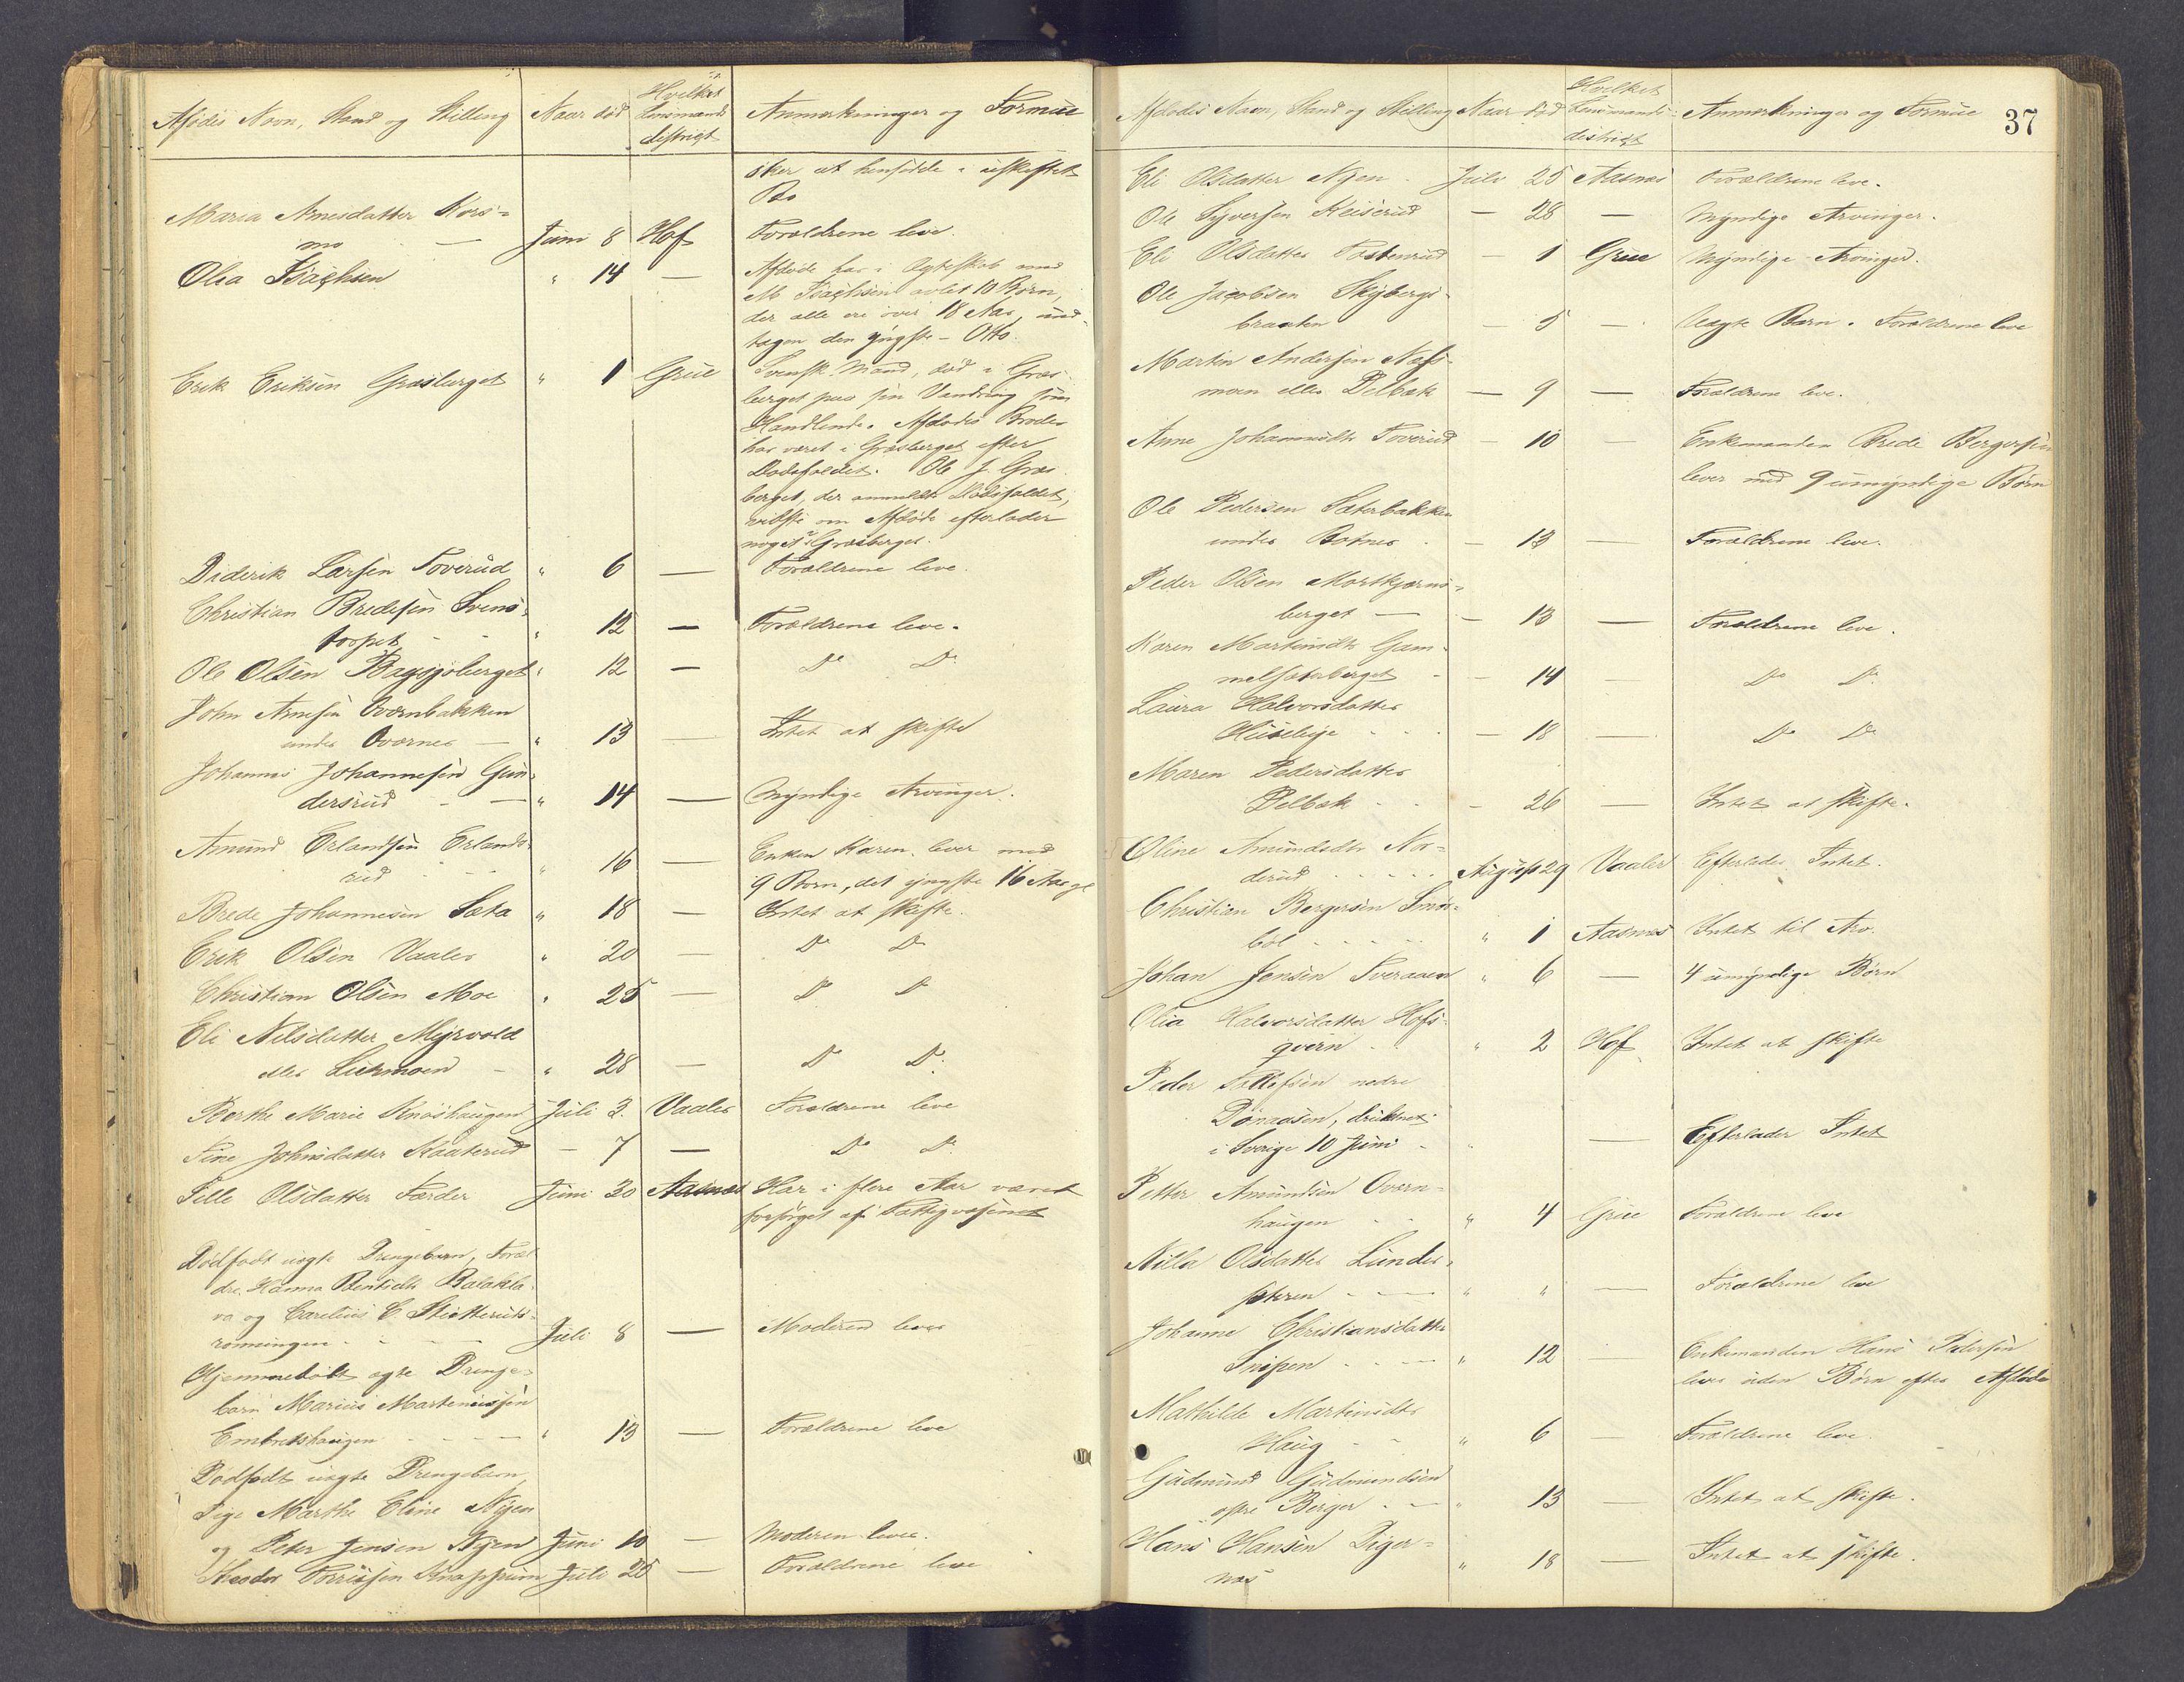 Afdødes Navn, Stand og Stilling Naar død Hvilket Lensmandsdistrigt Anmærkninger og Formue
sker at hensidde i uskiftet
Bo
Maria Arnesdatter Kors-
mo — Juni 8 Hof Forældrene leve.
Olea Isachsen " 14 — Afdøde har i Ægteskab med
M. Isachsen avlet 10 Børn,
der alle ere over 18 Aar, und-
tagen den yngste - Otto.
Erik Eriksen Græsberget " 1 Grue Svensk Mand, død i Græs-
berget paa sin Vandring som
Handlende. Afdødes Broder
har været i Græsberget efter
Dødsfaldet. Ole J. Græs-
berget, der anmeldte Dødsfaldet,
vidste om Afdøde efterlader
noget i Græsberget.
Diderik Larsen Toverud " 6 — Forældrene leve.
Christian Bredesen Svens-
torpet " 12 — Forældrene leve.
Ole Olsen Bagsjøberget " 12 — Do Do
John Arnesen Oværnbakken
under Oværnes — " 13 — Intet at skifte
Johannes Johannesen Gun-
dersrud — " 14 — Myndige Arvinger.
Amund Erlandsen Erlands-
rud " 16 — Enken Karen lever med
9 Børn, det yngste 16 Aar gl.
Brede Johannesen Sæta " 18 — Intet at skifte.
Erik Olsen Vaaler " 20 — Do Do
Christian Olsen Moe " 25 — Do Do
Eli Nilsdatter Myrvold
eller Liermoen " 28 — Do Do
Berthe Marie Knashaugen Juli 3. Vaaler Forældrene leve
Tine Johnsdatter Kaaterud - 7 — Do Do
Pelle Olsdatter Færder Juni 20 Aasnæs Har i flere Aar været
forsørget af Fattigvæsenet
Dødfødt uægte Drengebarn, Foræl-
dre, Hanna Berntsdtr Balakla-
va og Carelius C.
romningen Juli 8 — Moderen lever
Hjemmedøbt ægte Drenge-
barn Marius Marteniussen
Embretshaugen " 13 — Forældrene leve
Dødfødt uægte Drengebarn,
Pige Marthe Eline Nyen
og Peter Jensen Nyen Juni 10 — Moderen lever.
Theodor Torrissen Knappum Juli 25 — Forældrene leve
Afdødes Navn, Stand og Stilling Naar død Hvilket Lensmandsdistrigt Anmærkninger og Formue 37
Eli Olsdatter Nyen Juli 25 Aasnæs Forældrene leve.
Ole Syversen Keiserud — 28 — Myndige Arvinger.
Eli Olsdatter Tostenrud — 1 Grue Myndige Arvinger.
Ole Jacobsen Skybergs-
braaten — 5 — Uægte Barn. Forældrene leve
Martin Andersen Næs-
moen eller Delbæk — 9 — Forældrene leve.
Anne Johannesdtr Toverud — 10 — Enkemanden Brede Bergersen
lever med 9 umyndige Børn
Ole Pedersen Sæterbakken
under Botner — 13 — Forældrene leve.
Peder Olsen Mortkjærns-
berget — — 13 — Forældrene leve.
Karen Martinsdtr Gam-
melsæterberget — 14 — Do Do
Laura Halvorsdatter
Huseleje — 18 — Do Do
Maren Pedersdatter
Delbæk — 26 — Intet at skifte.
Oline Amundsdtr Nor-
derud August 29 Vaaler Efterlader Intet.
Christian Bergersen Smør-
bøl " 1 Aasnæs Intet til Arv.
Johan Jensen Tveraaen " 6 — 4 umyndige Børn
Olia Halvorsdatter Hofs-
qvern " 2 Hof Intet at skifte
Peder Tollefsen nedre
Dønaasen, druknet
i Sverige 10 Juni " — Efterlader Intet
Petter Amundsen Oværn-
haugen " 4 Grue Forældrene leve
Nilla Olsdatter Lunder-
sæteren " " — Forældrene leve
Johanne Christiansdatter
Snipen " 12 — Enkemanden Hans Pedersen
lever uden Børn efter Afdøde
Mathilde Martinsdtr
Haug " 6 — Forældrene leve.
Gudmund Gudmundsen
østre Berger " 13 — Intet at skifte.
Hans Hansen Diger-
næs " 18 — Intet at skifte.